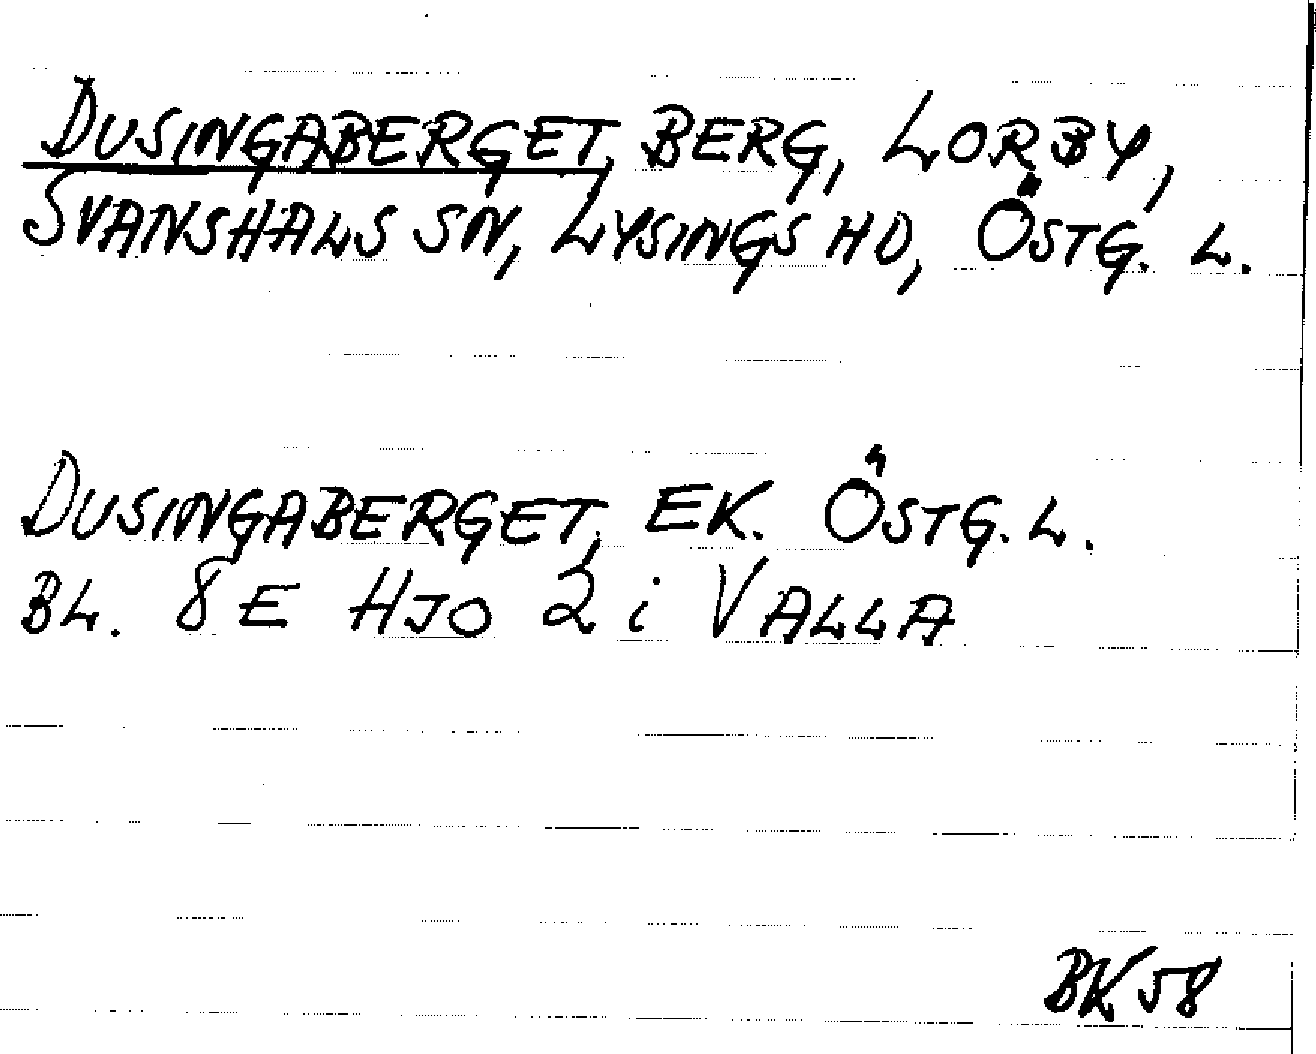 DUSINGABERGET, BERG, LORBY,
SVANSHALS SN, LYSINGS HD, ÖSTG. L.
DUSINGABERGET, EK. ÖSTG. L.
BL. 8E HJO 2 i VALLA
BK 58